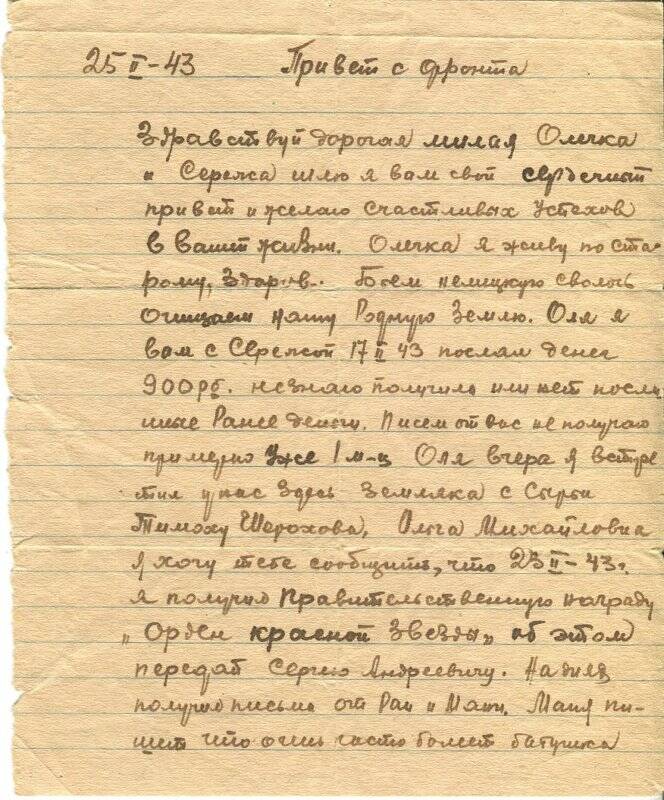 25 II – 43 Привет с фронта
Здравствуй дорогая милая Олечка
и Сережа шлю я вам свой сердечный
привет и желаю счастливых успехов
в вашей жизни. Олечка я живу по ста-
рому, здоров. Бьем немецкую сволочь
очищаем нашу Родную Землю. Оля я
вам с Сережой 17 II 43 послал денег
900 рб. незнаю получили или нет посла
ные Ранее деньги. Писем от вас не получаю
примерно уже 1 м-ц Оля вчера я встре
тил у нас здесь Земляка с
Тимоху Шорохова. Ольга Михайловна
я хочу тебе сообщить, что 23 II – 43 г.
я получил Правительственную награду
„Орден красной Звезды„ об этом
передай Сергею Андреевичу. На днях
получил письма от Раи и Мани. Маня пи-
шет что очень часто болеет батушка